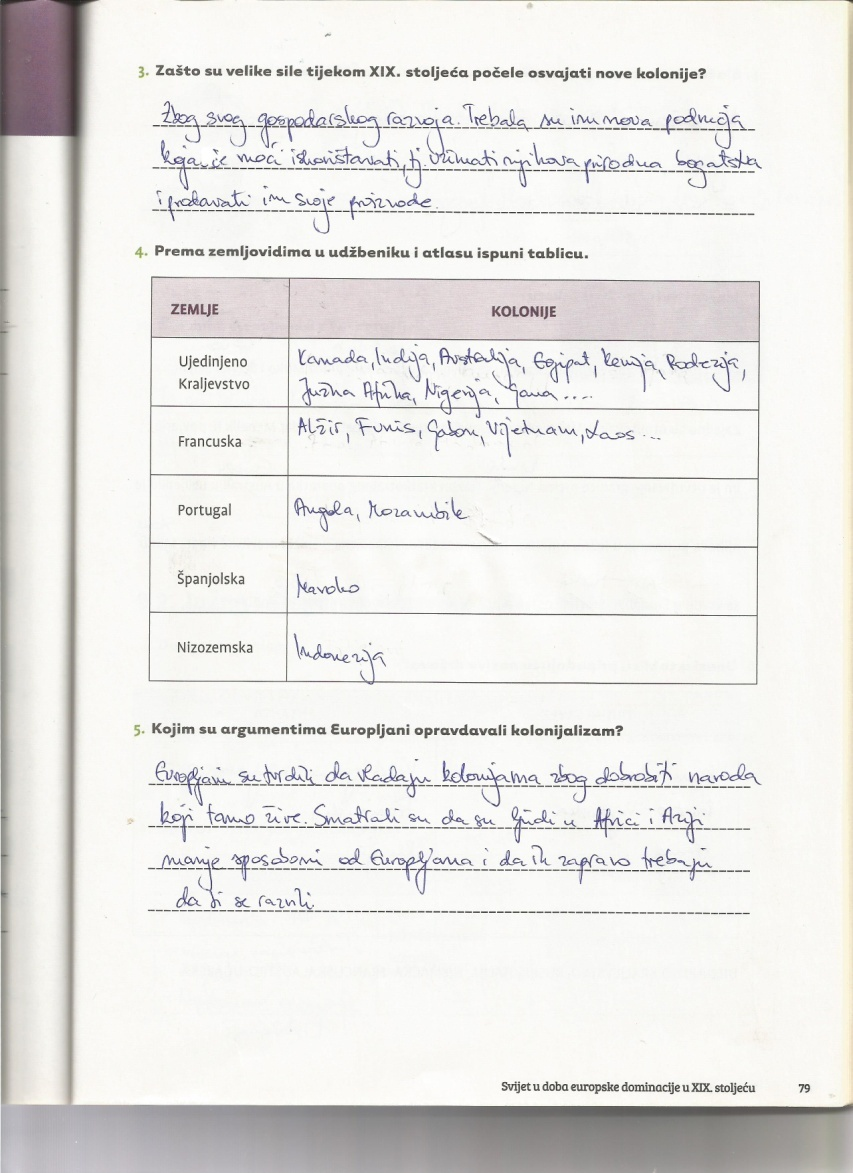 3. Zašto su velike sile tijekom XIX. stoljeća počele osvajati nove kolonije?
Zbog svog gospodarskog razvoja. Trebala su im nova područja
koja će moći iskorištavati, tj. uzimati njihova prirodna bogatstva
i prodavati im svoje proizvode.
4. Prema zemljovidima u udžbeniku i atlasu ispuni tablicu.
ZEMLJE KOLONIJE
Ujedinjeno Kanada, Indija, Australija, Egipat, Kenija, Rodezija,
Kraljevstvo Južna Afrika, Nigerija, Gana ....
Francuska Alžir, Tunis, Gabon, Vijetnam, Laos ...
Portugal Angola, Mozambik
Španjolska Maroko
Nizozemska Indonezija
5. Kojim su argumentima Europljani opravdavali kolonijalizam?
Europljani su tvrdili da vladaju kolonijama zbog dobrobiti naroda
koji tamo žive. Smatrali su da su ljudi u Africi i Aziji
manje sposobni od Europljana i da ih zapravo trebaju
da bi se razvili.
Svijet u doba europske dominacije u XIX. stoljeću 79